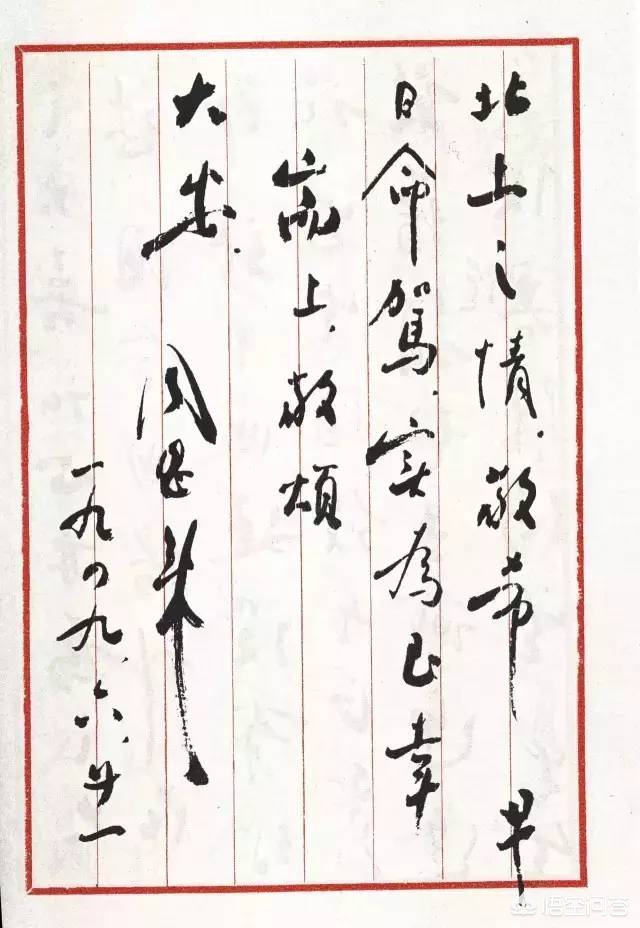 北上之情，敬希 早
日命駕，实為至幸
耑上，敬颂
大安
周恩来
一九四九、六、廿一
悟空问答